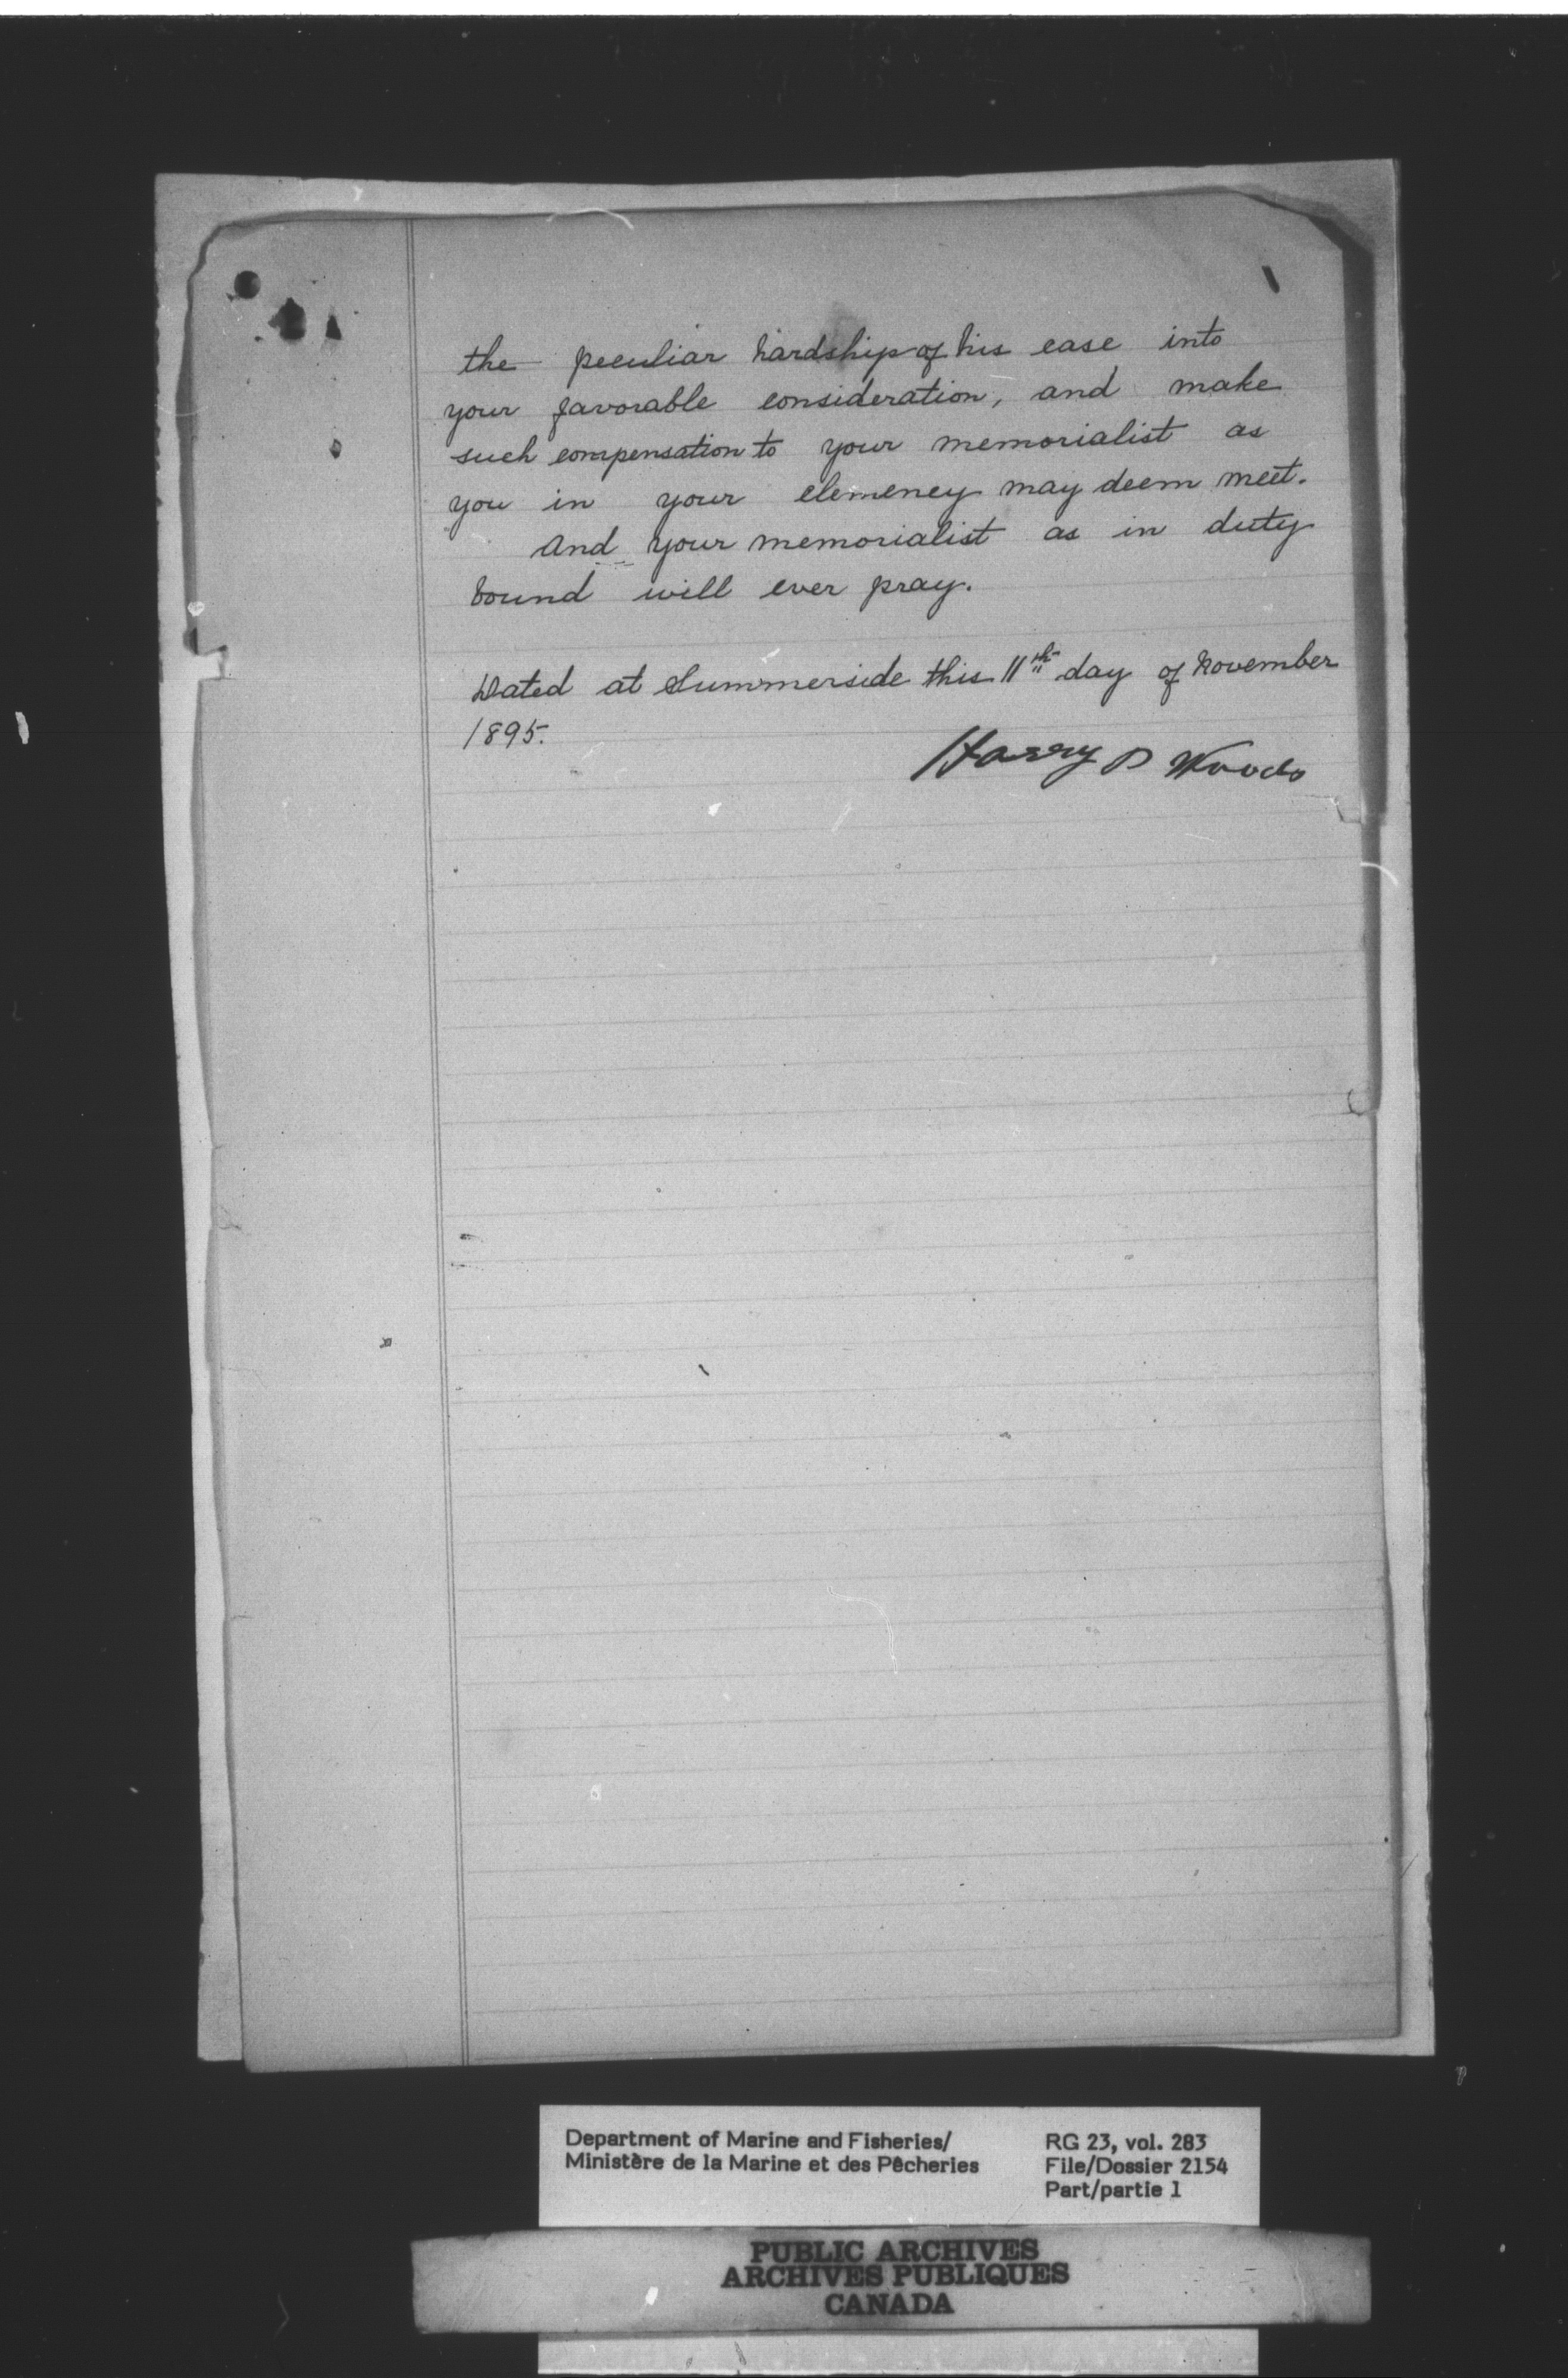 the peculiar hardship of his case into
your favorable consideration, and make
such compensation to your memorialist as
you in your clemency may deem meet.
And your memorialist as in duty
bound will ever pray.
Dated at Summerside this 11th day of November
1895.
Harry D Woods
Department of Marine and Fisheries/
Ministère de la Marine et des Pêcheries
RG 23, vol. 283
File/Dossier 2154
Part/partie 1
PUBLIC ARCHIVES
ARCHIVES PUBLIQUES
CANADA